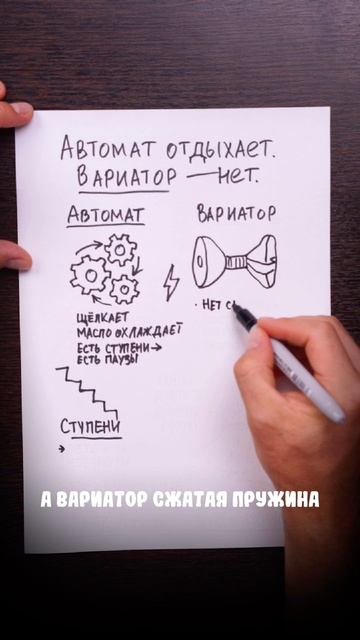 Автомат отдыхает.
Вариатор — нет.
Автомат
Вариатор
щёлкает
масло охлаждает
есть ступени→
есть паузы
Ступени
· нет
А ВАРИАТОР СЖАТАЯ ПРУЖИНА